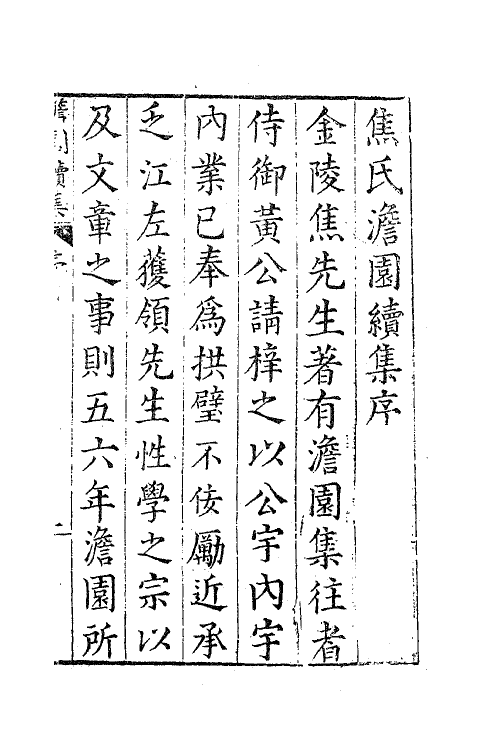 焦氏澹園續集序
金陵焦先生著有澹園集往者
侍御黃公請梓之以公宇內宇
內業已奉為拱璧不佞勵近承
乏江左獲領先生性學之宗以
及文章之事則五六年澹園所
澹園續集 序 一